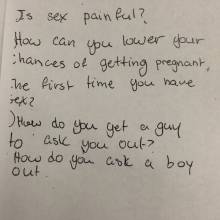 Is sex painful?
How can you lower your
hances of getting pregnant,
he first time you have
sex?
) How do you get a guy
to ask you out?
How do you ask a boy
out.